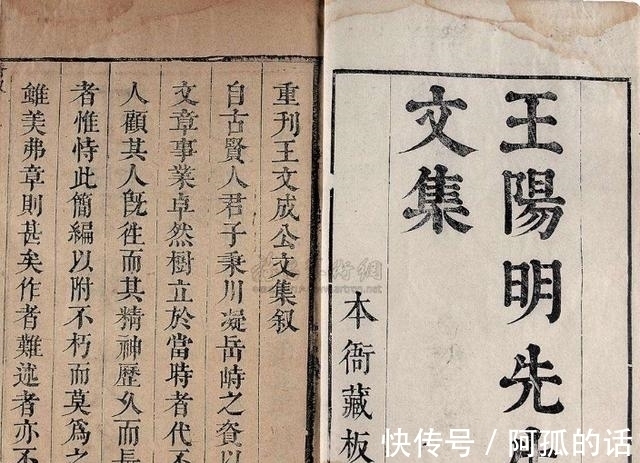 王陽明先
文集
本衙藏板
重刊王文成公文集叙
自古賢人君子秉川凝岳峙之資以
文章事業卓然樹立於當時者代不
人顧其人旣徃而其精神歷久而其
者惟恃此簡編以附不朽而莫爲之
雖美弗章則甚矣作者難述者亦不
快传号/阿孤的话